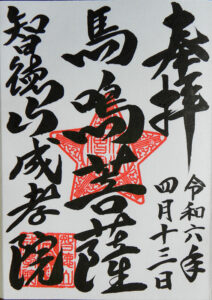 奉拝
令和六年
四月十三日
馬鳴菩薩
智徳山成孝院